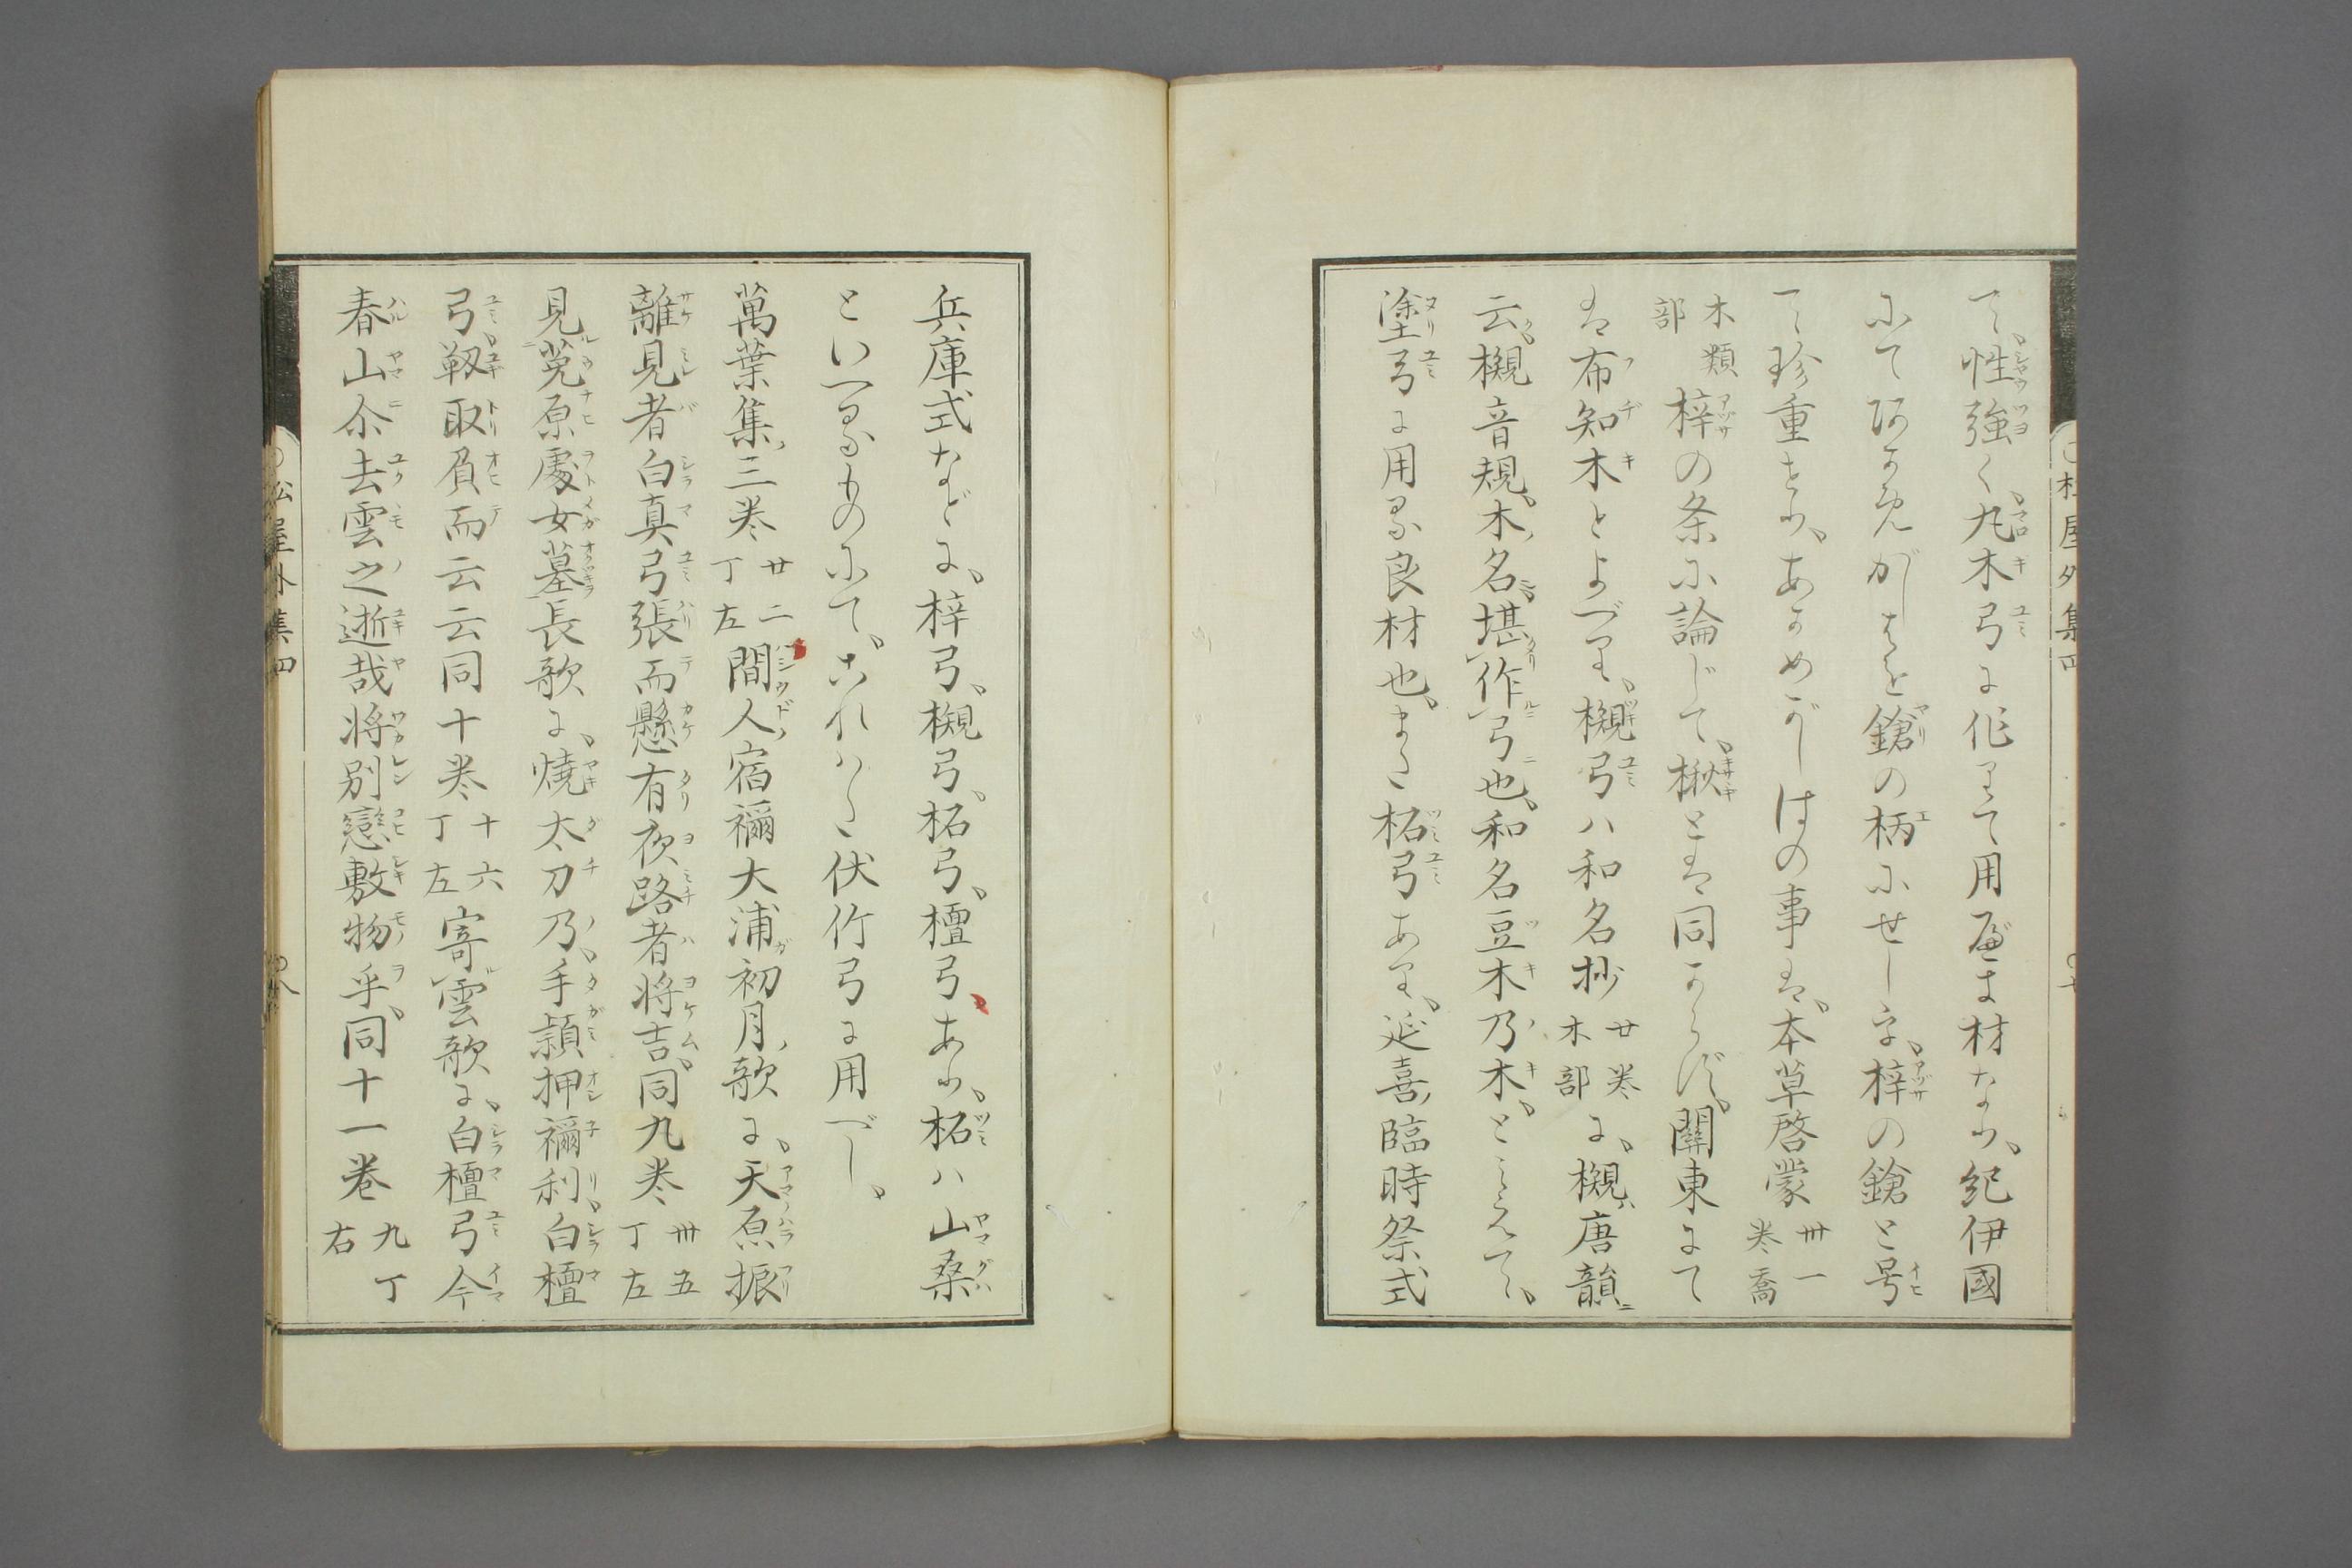 て、性強く、丸木弓に作りて用べき材なり、紀伊國
にてあかめがしはを鎗の柄にせしを、梓の鎗と号
て珍重せり、あかめがしはの事は、本草啓蒙 卅一巻喬
木類部 梓の条に論じて、楸とは同からず、關東にて
は布知木とよべり、槻弓ハ和名抄 廿巻木部 に、槻唐韻
云、槻音規、木名、堪作弓也、和名豆木乃木、とみえて、
塗弓に用る良材也、また柘弓あり、延喜臨時祭式
兵庫式などに、梓弓、槻弓、柘弓、檀弓あり、柘ハ山桑
といへるものにて、これハた伏竹弓に用べし、
萬葉集三巻 廿二丁左 間人宿禰大浦初月歌に、天原振
離見者白真弓張而懸有夜路者将吉、同九巻 卅五丁左
見菟原處女墓長歌に、燒太刀乃、手頴押禰利、白檀
弓、靱取負而云云同十巻 十六丁左 寄雲歌に、白檀弓今
春山尒去雲之逝哉将別戀敷物乎、同十一巻 九丁右
松屋外集四